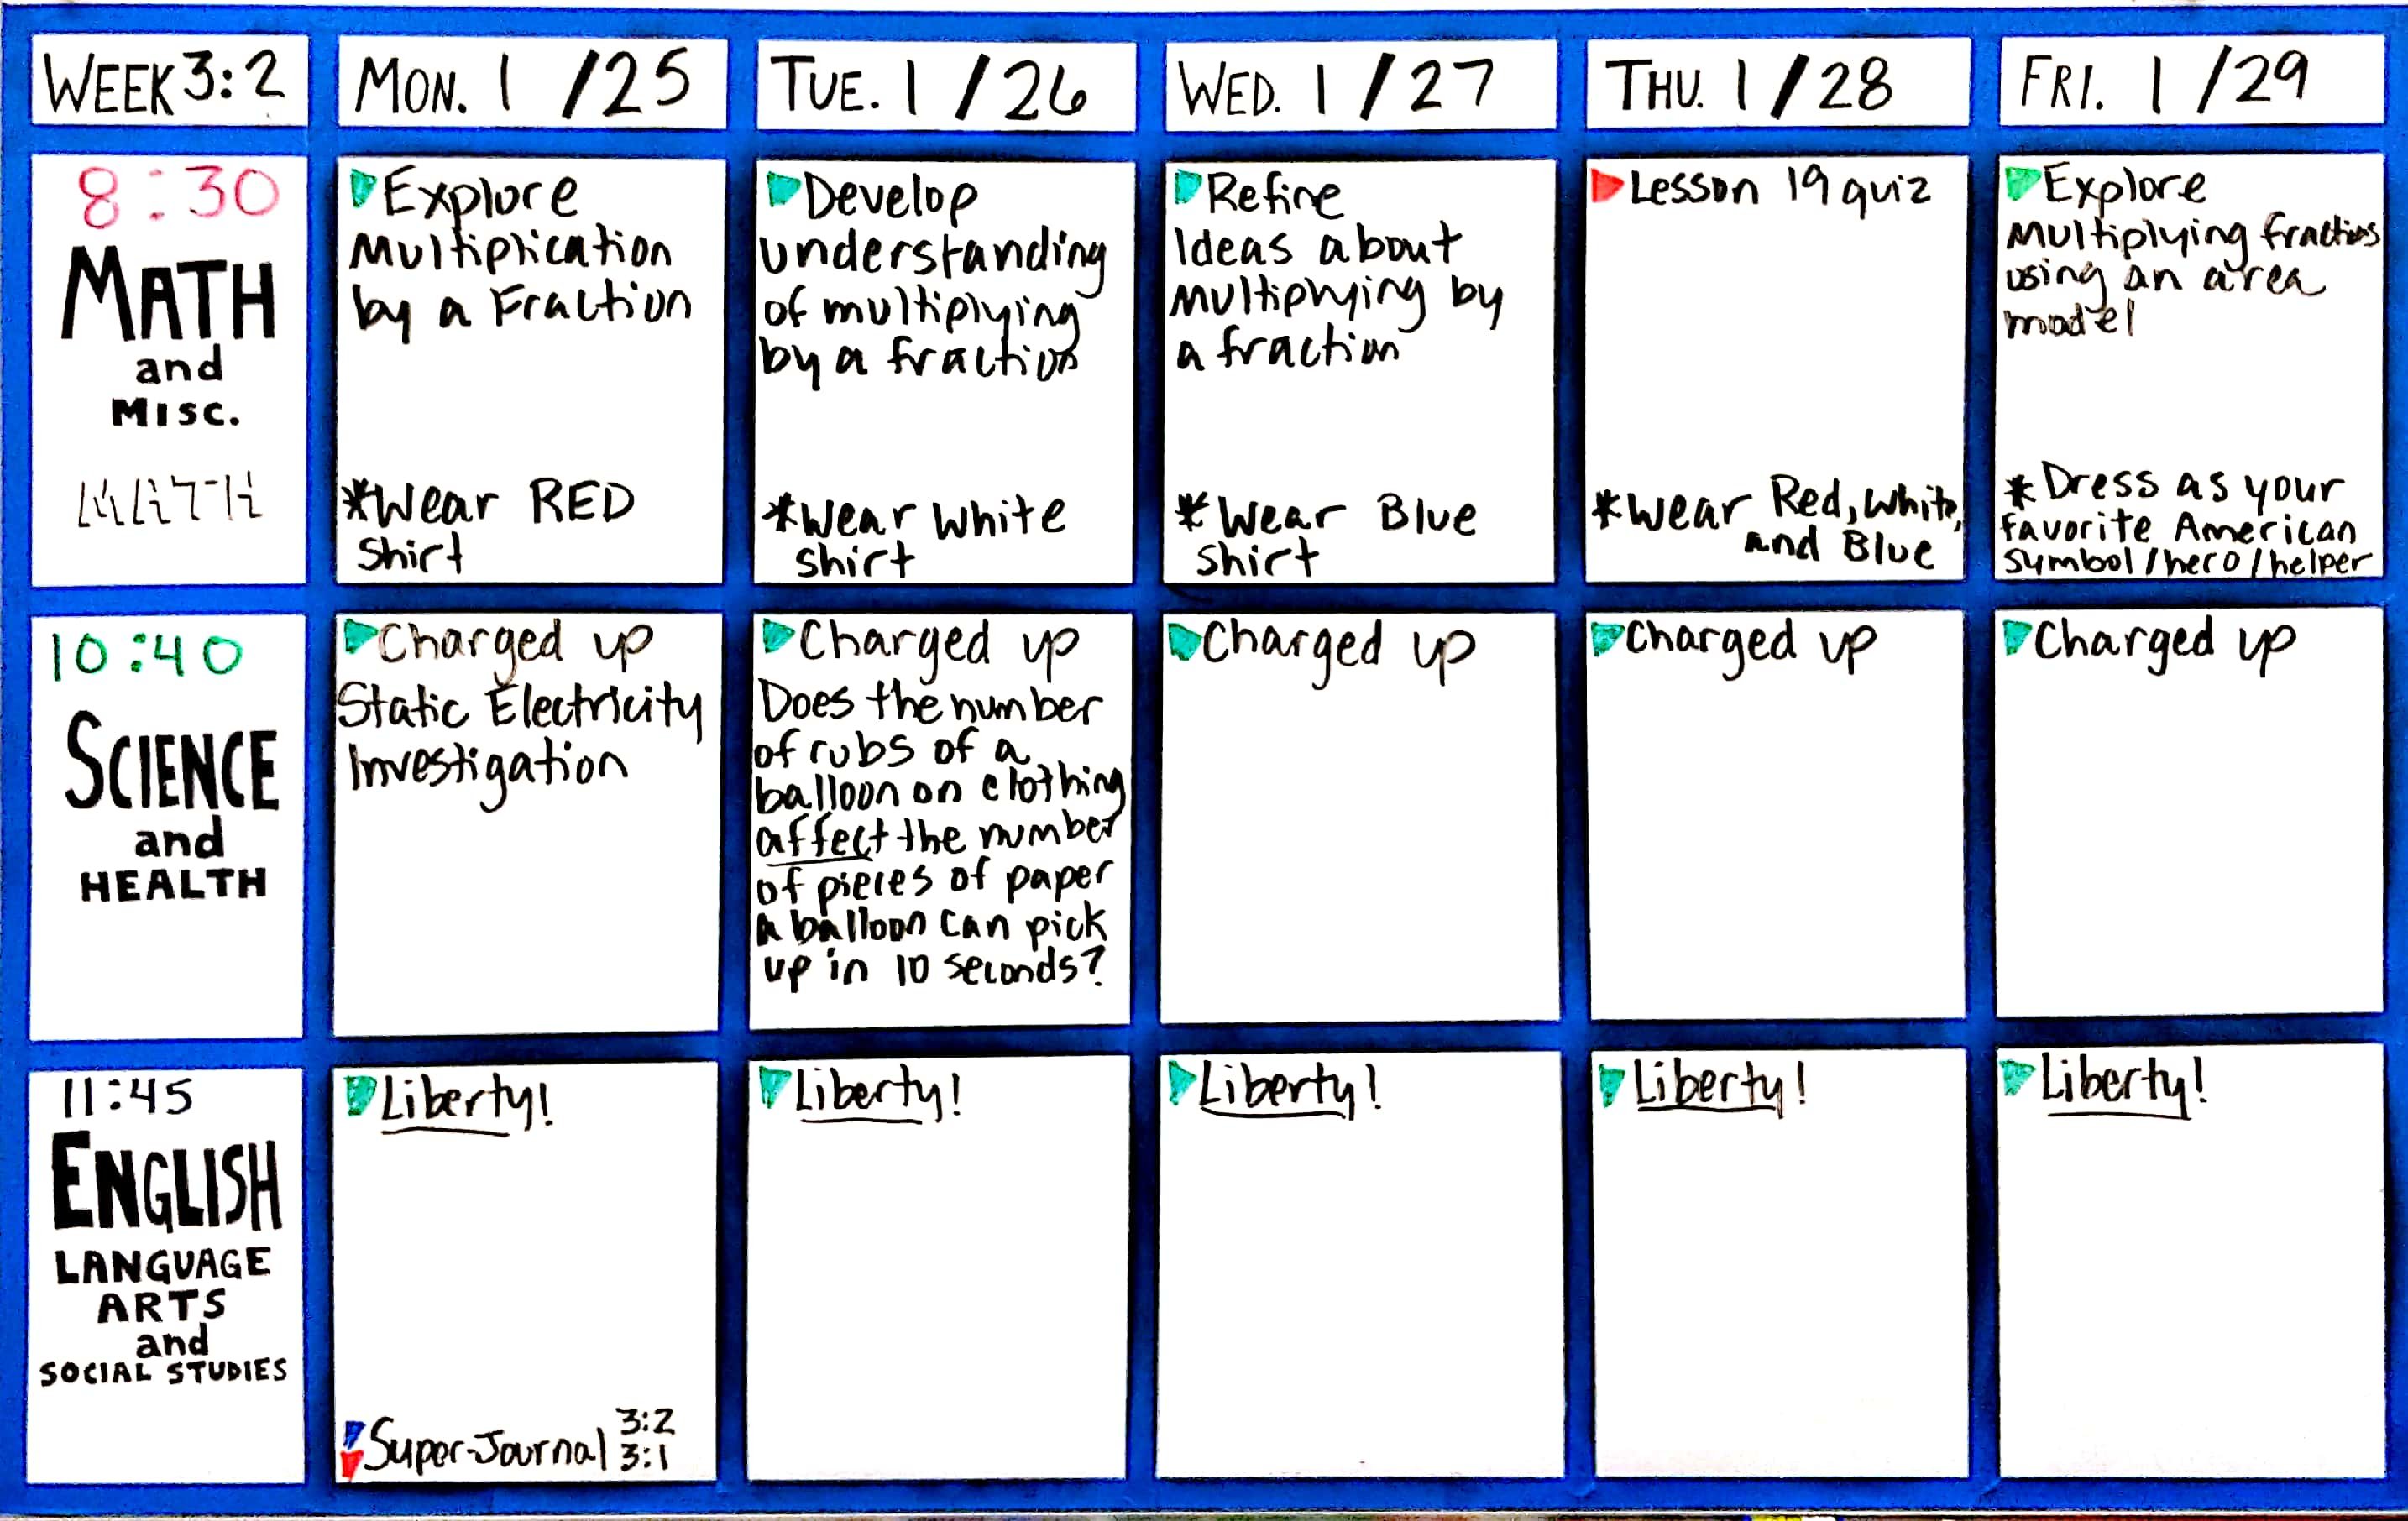 WEEK 3:2
MON. 1/25
TUE. 1/26
WED. 1/27
THU. 1/28
FRI. 1/29
8:30
MATH
and
MISC.
MATH
Explore
Multiplication
by a Fraction
*Wear RED
shirt
Develop
understanding
of multiplying
by a fraction
*Wear White
shirt
Refine
Ideas about
Multiplying by
a fraction
*Wear Blue
shirt
Lesson 19 quiz
*Wear Red, White,
and Blue
Explore
Multiplying fractions
using an area
model
*Dress as your
favorite American
symbol/hero/helper
10:40
SCIENCE
and
HEALTH
Charged up
Static Electricity
Investigation
Charged up
Does the number
of rubs of a
balloon on clothing
affect the number
of pieces of paper
a balloon can pick
up in 10 seconds?
Charged up
Charged up
Charged up
11:45
ENGLISH
LANGUAGE
ARTS
and
SOCIAL STUDIES
Liberty!
Super-Journal 3:2
3:1
Liberty!
Liberty!
Liberty!
Liberty!